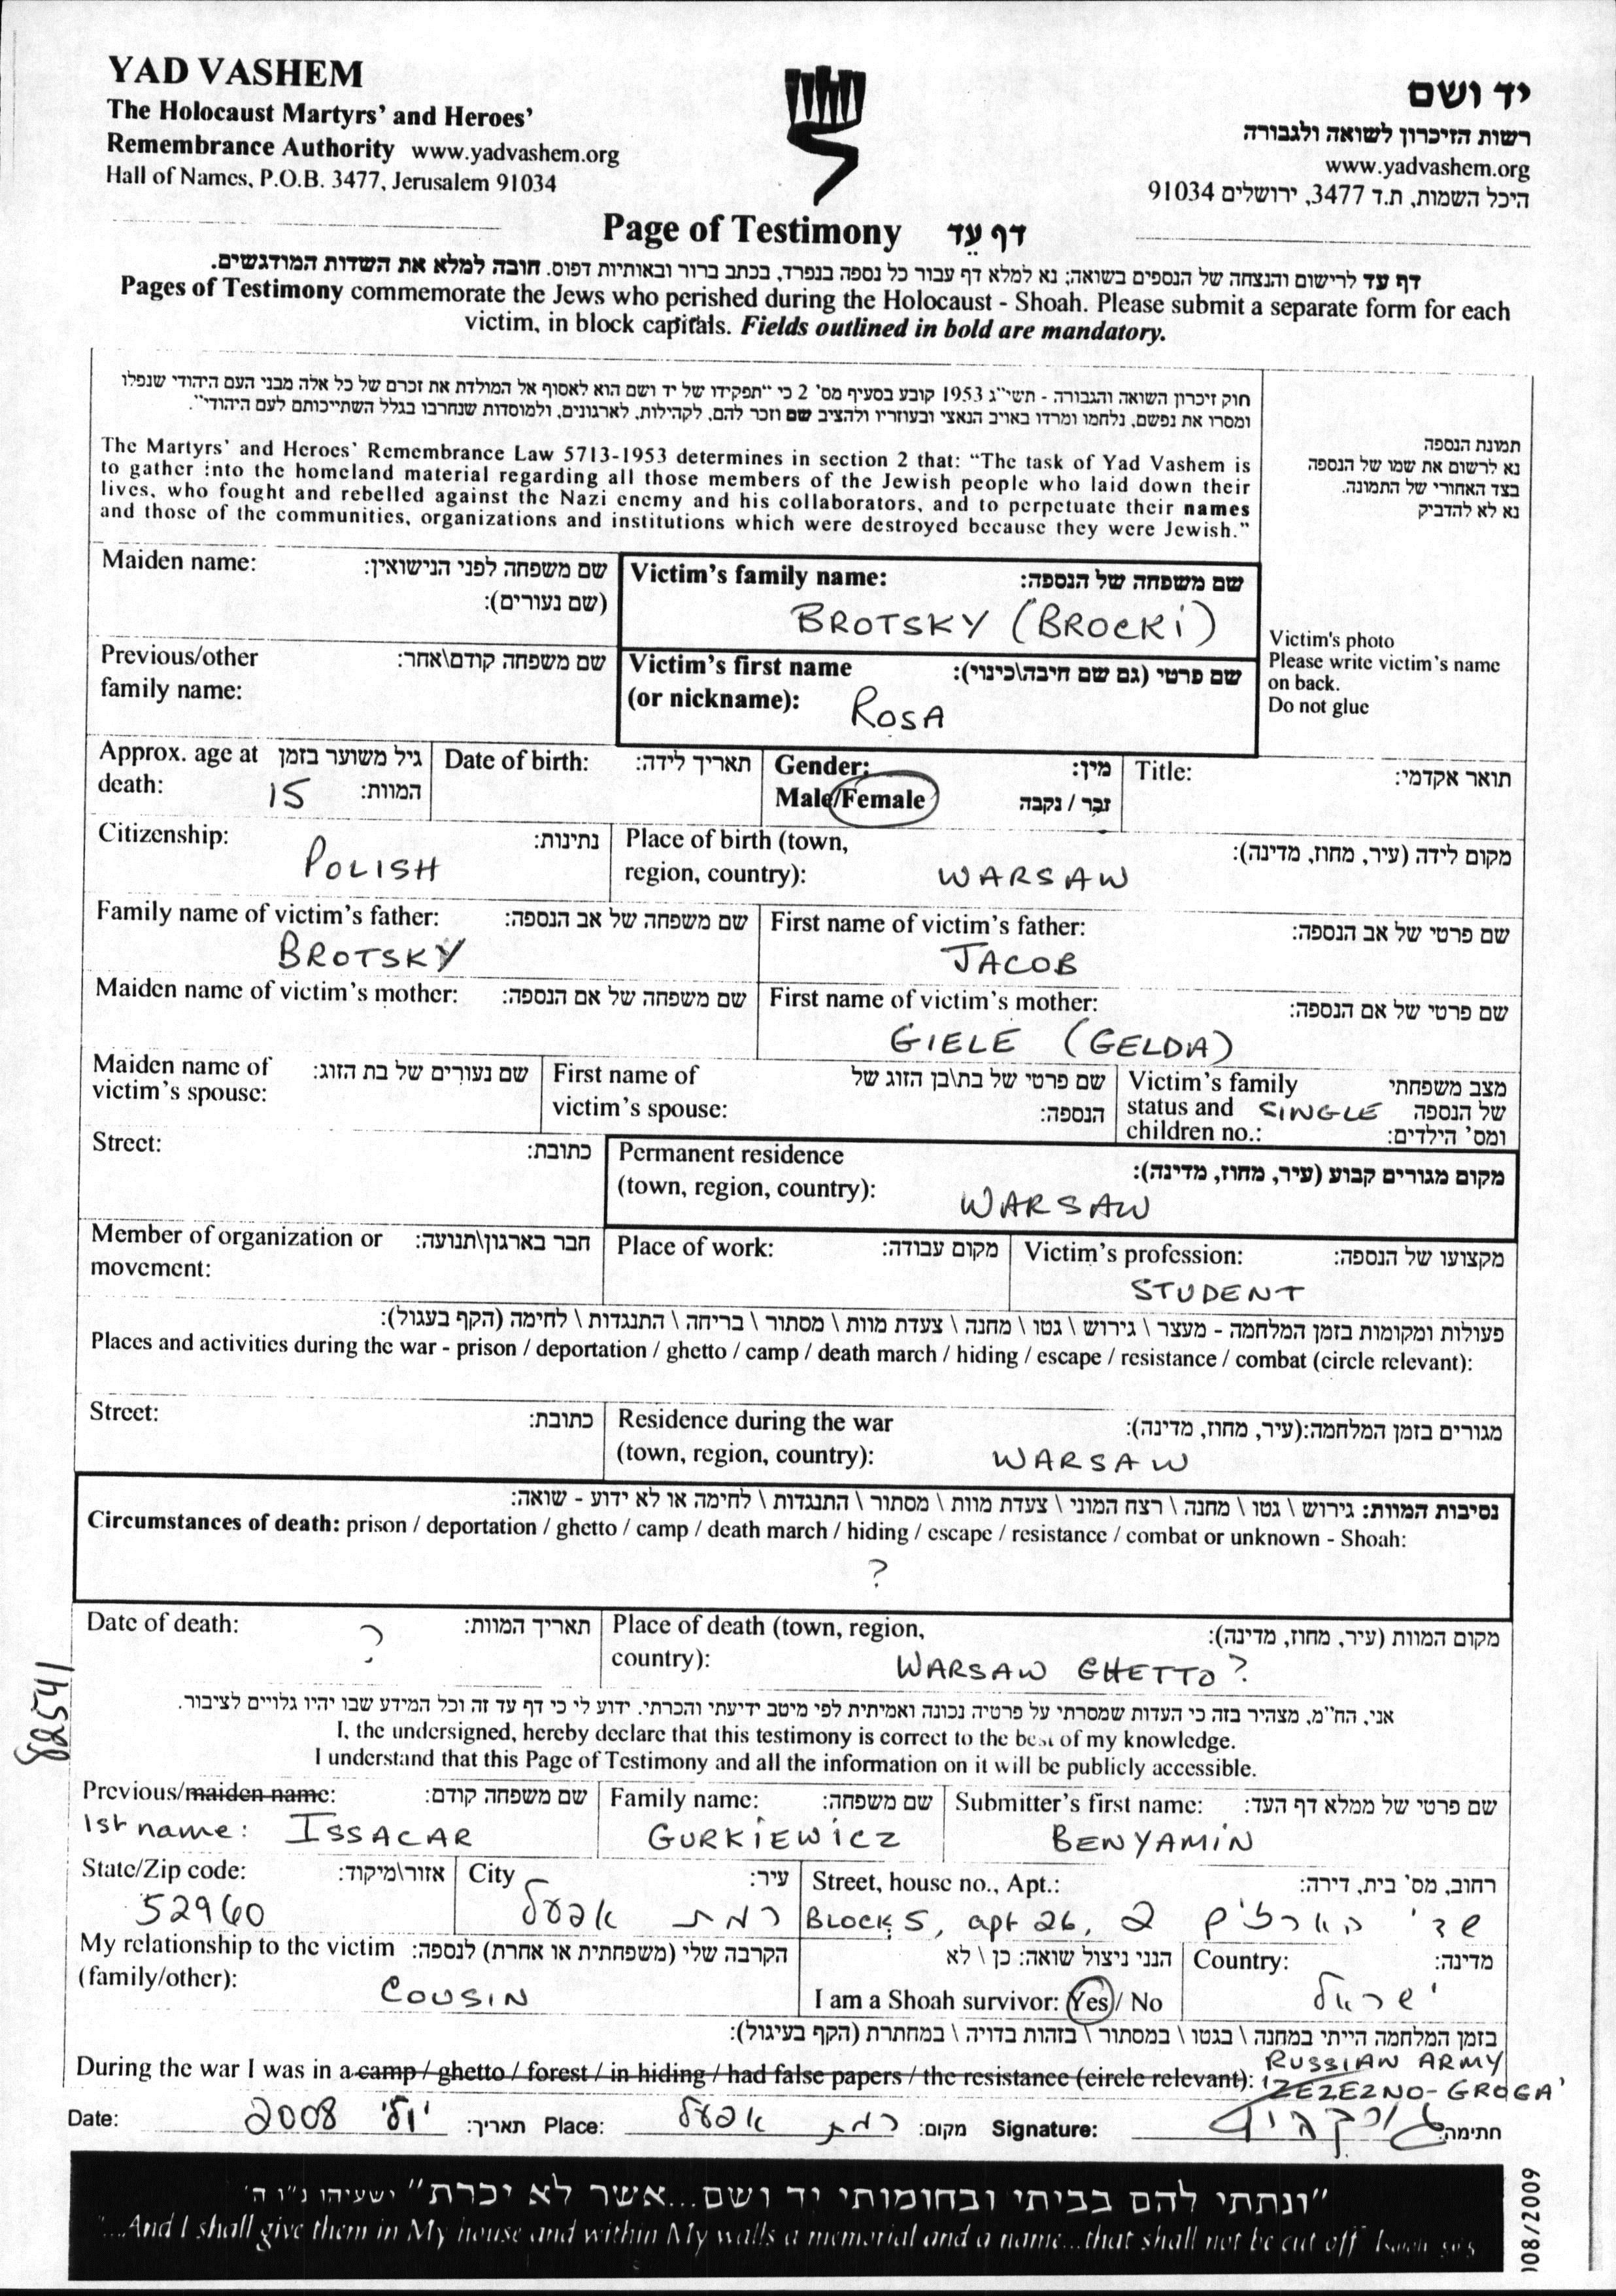 YAD VASHEM
The Holocaust Martyrs' and Heroes'
Remembrance Authority www.yadvashem.org
Hall of Names, P.O.B. 3477, Jerusalem 91034
יד ושם
רשות הזיכרון לשואה ולגבורה
www.yadvashem.org
היכל השמות, ת.ד 3477, ירושלים 91034
Page of Testimony דף עֵד
דף עד לרישום והנצחה של הנספים בשואה; נא למלא דף עבור כל נספה בנפרד, בכתב ברור ובאותיות דפוס. חובה למלא את השדות המודגשים.
Pages of Testimony commemorate the Jews who perished during the Holocaust - Shoah. Please submit a separate form for each
victim, in block capitals. Fields outlined in bold are mandatory.
חוק זיכרון השואה והגבורה - תשי"ג 1953 קובע בסעיף מס' 2 כי "תפקידו של יד ושם הוא לאסוף אל המולדת את זכרם של כל אלה מבני העם היהודי שנפלו
ומסרו את נפשם, נלחמו ומרדו באויב הנאצי ובעוזריו ולהציב שם וזכר להם, לקהילות, לארגונים, ולמוסדות שנחרבו בגלל השתייכותם לעם היהודי".
The Martyrs' and Heroes' Remembrance Law 5713-1953 determines in section 2 that: "The task of Yad Vashem is
to gather into the homeland material regarding all those members of the Jewish people who laid down their
lives, who fought and rebelled against the Nazi enemy and his collaborators, and to perpetuate their names
and those of the communities, organizations and institutions which were destroyed because they were Jewish."
תמונת הנספה
נא לרשום את שמו של הנספה
בצד האחורי של התמונה.
נא לא להדביק
Victim's photo
Please write victim's name
on back.
Do not glue
Maiden name: שם משפחה לפני הנישואין:
(שם נעורים):
Victim's family name: שם משפחה של הנספה:
BROTSKY (BROCKI)
Previous/other שם משפחה קודם\אחר:
family name:
Victim's first name שם פרטי (גם שם חיבה\כינוי):
(or nickname): ROSA
Approx. age at גיל משוער בזמן
death: 15 המוות:
Date of birth: תאריך לידה:
Gender: מין:
Male/Female זכר / נקבה
Title: תואר אקדמי:
Citizenship: נתינות:
POLISH
Place of birth (town, מקום לידה (עיר, מחוז, מדינה):
region, country): WARSAW
Family name of victim's father: שם משפחה של אב הנספה:
BROTSKY
First name of victim's father: שם פרטי של אב הנספה:
JACOB
Maiden name of victim's mother: שם משפחה של אם הנספה:
First name of victim's mother: שם פרטי של אם הנספה:
GIELE (GELDA)
Maiden name of שם נעורים של בת הזוג:
victim's spouse:
First name of שם פרטי של בת\בן הזוג של
victim's spouse: הנספה:
Victim's family מצב משפחתי
status and SINGLE של הנספה
children no.: ומס' הילדים:
Street: כתובת:
Permanent residence מקום מגורים קבוע (עיר, מחוז, מדינה):
(town, region, country): WARSAW
Member of organization or חבר בארגון\תנועה:
movement:
Place of work: מקום עבודה:
Victim's profession: מקצועו של הנספה:
STUDENT
פעולות ומקומות בזמן המלחמה - מעצר \ גירוש \ גטו \ מחנה \ צעדת מוות \ מסתור \ בריחה \ התנגדות \ לחימה (הקף בעגול):
Places and activities during the war - prison / deportation / ghetto / camp / death march / hiding / escape / resistance / combat (circle relevant):
Street: כתובת:
Residence during the war מגורים בזמן המלחמה:(עיר, מחוז, מדינה):
(town, region, country): WARSAW
נסיבות המוות: גירוש \ גטו \ מחנה \ רצח המוני \ צעדת מוות \ מסתור \ התנגדות \ לחימה או לא ידוע - שואה:
Circumstances of death: prison / deportation / ghetto / camp / death march / hiding / escape / resistance / combat or unknown - Shoah:
?
Date of death: ? תאריך המוות:
Place of death (town, region, מקום המוות (עיר, מחוז, מדינה):
country): WARSAW GHETTO?
אני, הח"מ, מצהיר בזה כי העדות שמסרתי על פרטיה נכונה ואמיתית לפי מיטב ידיעתי והכרתי. ידוע לי כי דף עד זה וכל המידע שבו יהיו גלויים לציבור.
I, the undersigned, hereby declare that this testimony is correct to the best of my knowledge.
I understand that this Page of Testimony and all the information on it will be publicly accessible.
82541
Previous/maiden name: שם משפחה קודם:
1st name: ISSACAR
Family name: שם משפחה:
GURKIEWICZ
Submitter's first name: שם פרטי של ממלא דף העד:
BENYAMIN
State/Zip code: אזור\מיקוד:
52960
City עיר:
רמת אפעל
Street, house no., Apt.: רחוב, מס' בית, דירה:
BLOCK 5, apt 26, שד' הארזים 2
My relationship to the victim הקרבה שלי (משפחתית או אחרת) לנספה:
(family/other): COUSIN
הנני ניצול שואה: כן \ לא
I am a Shoah survivor: Yes / No
Country: מדינה:
ישראל
בזמן המלחמה הייתי במחנה \ בגטו \ במסתור \ בזהות בדויה \ במחתרת (הקף בעיגול):
During the war I was in a camp / ghetto / forest / in hiding / had false papers / the resistance (circle relevant): RUSSIAN ARMY
Date: יולי 2008 תאריך: Place: רמת אפעל מקום: Signature: חתימה:
"ונתתי להם בביתי ובחומותי יד ושם...אשר לא יכרת" ישעיהו נ"ו ה'
"...And I shall give them in My house and within My walls a memorial and a name...that shall not be cut off" Isaiah 56:5
008/2009